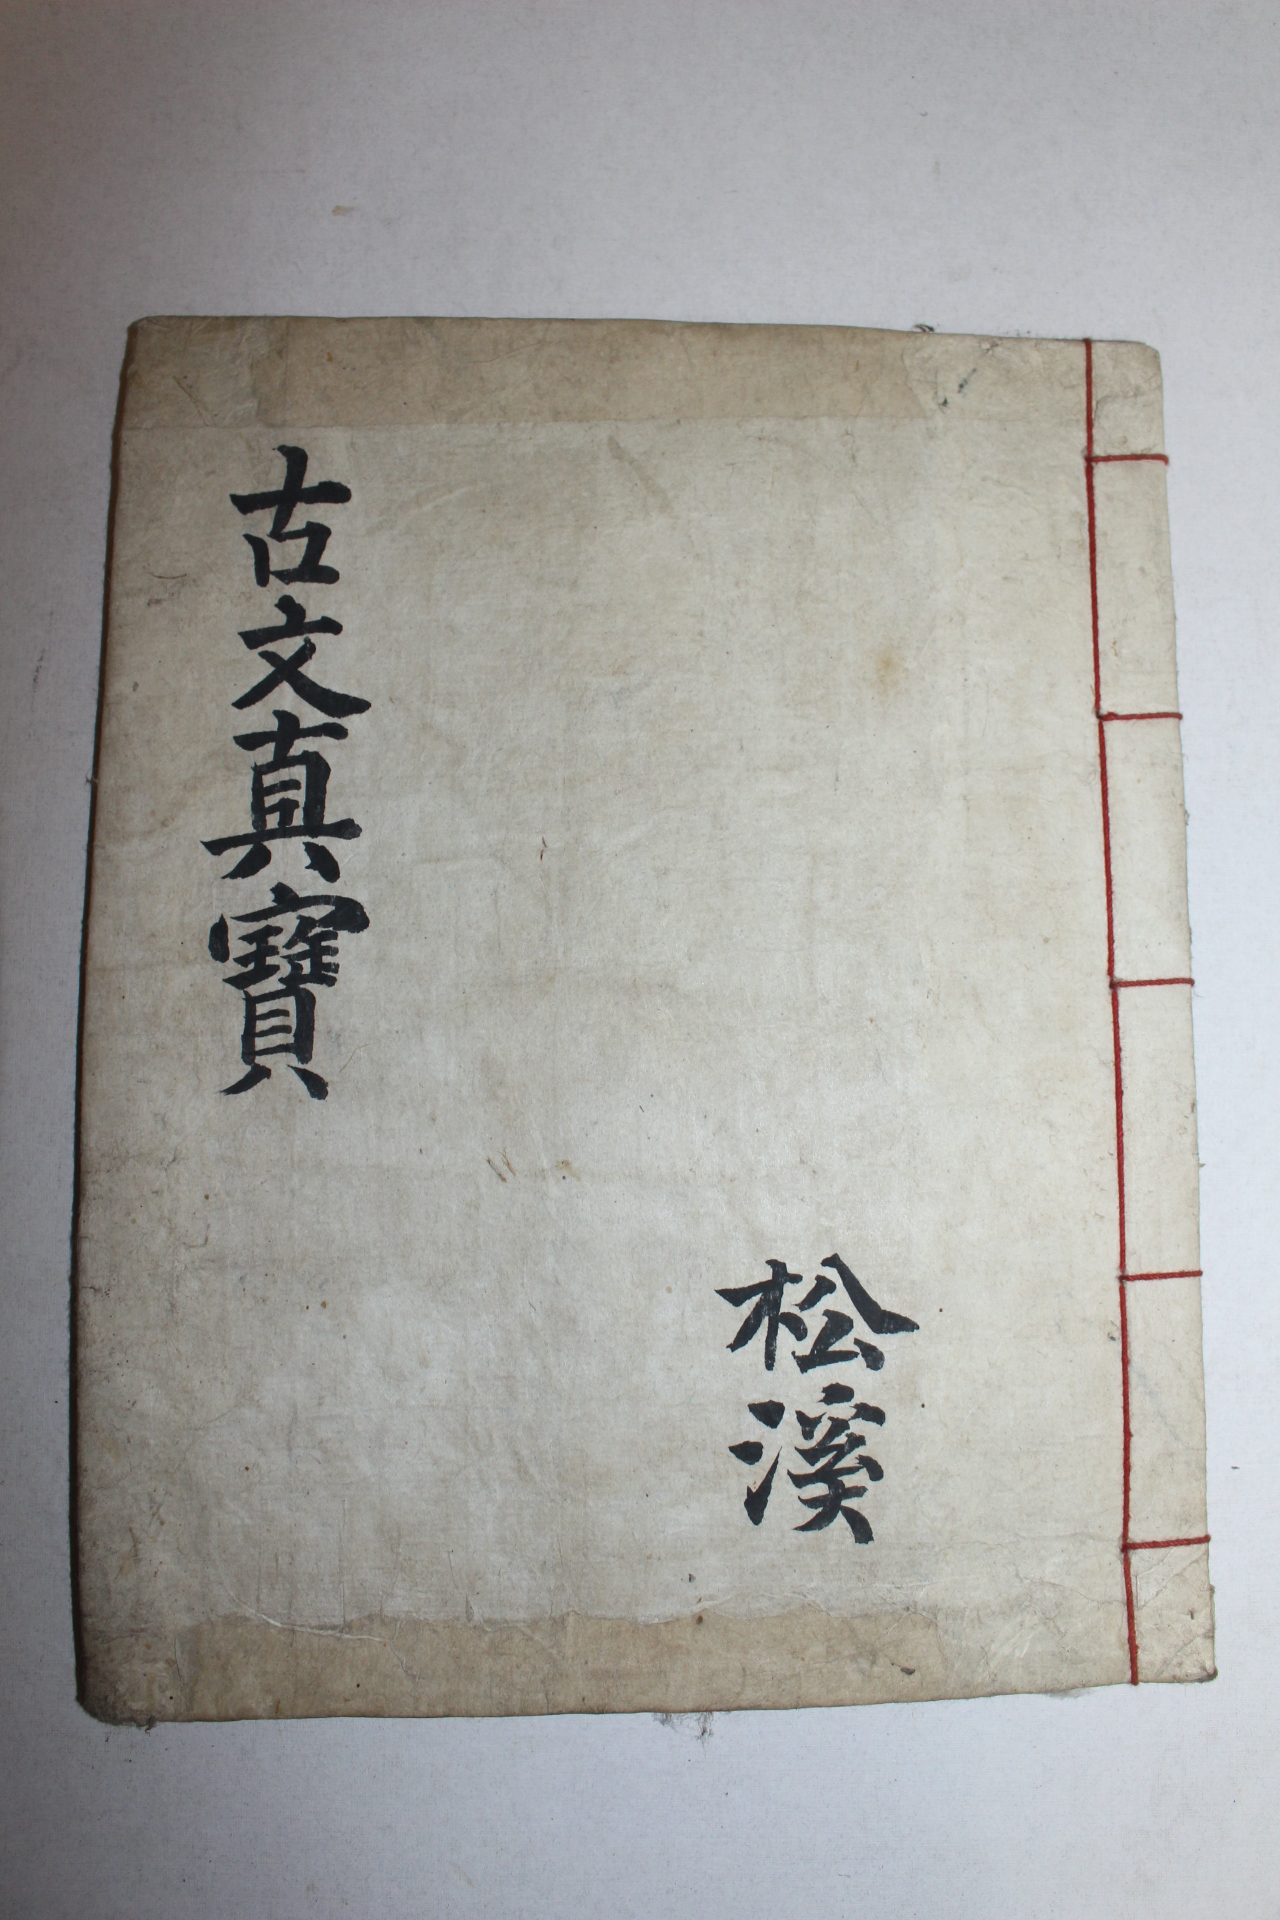 古文真寶
松溪